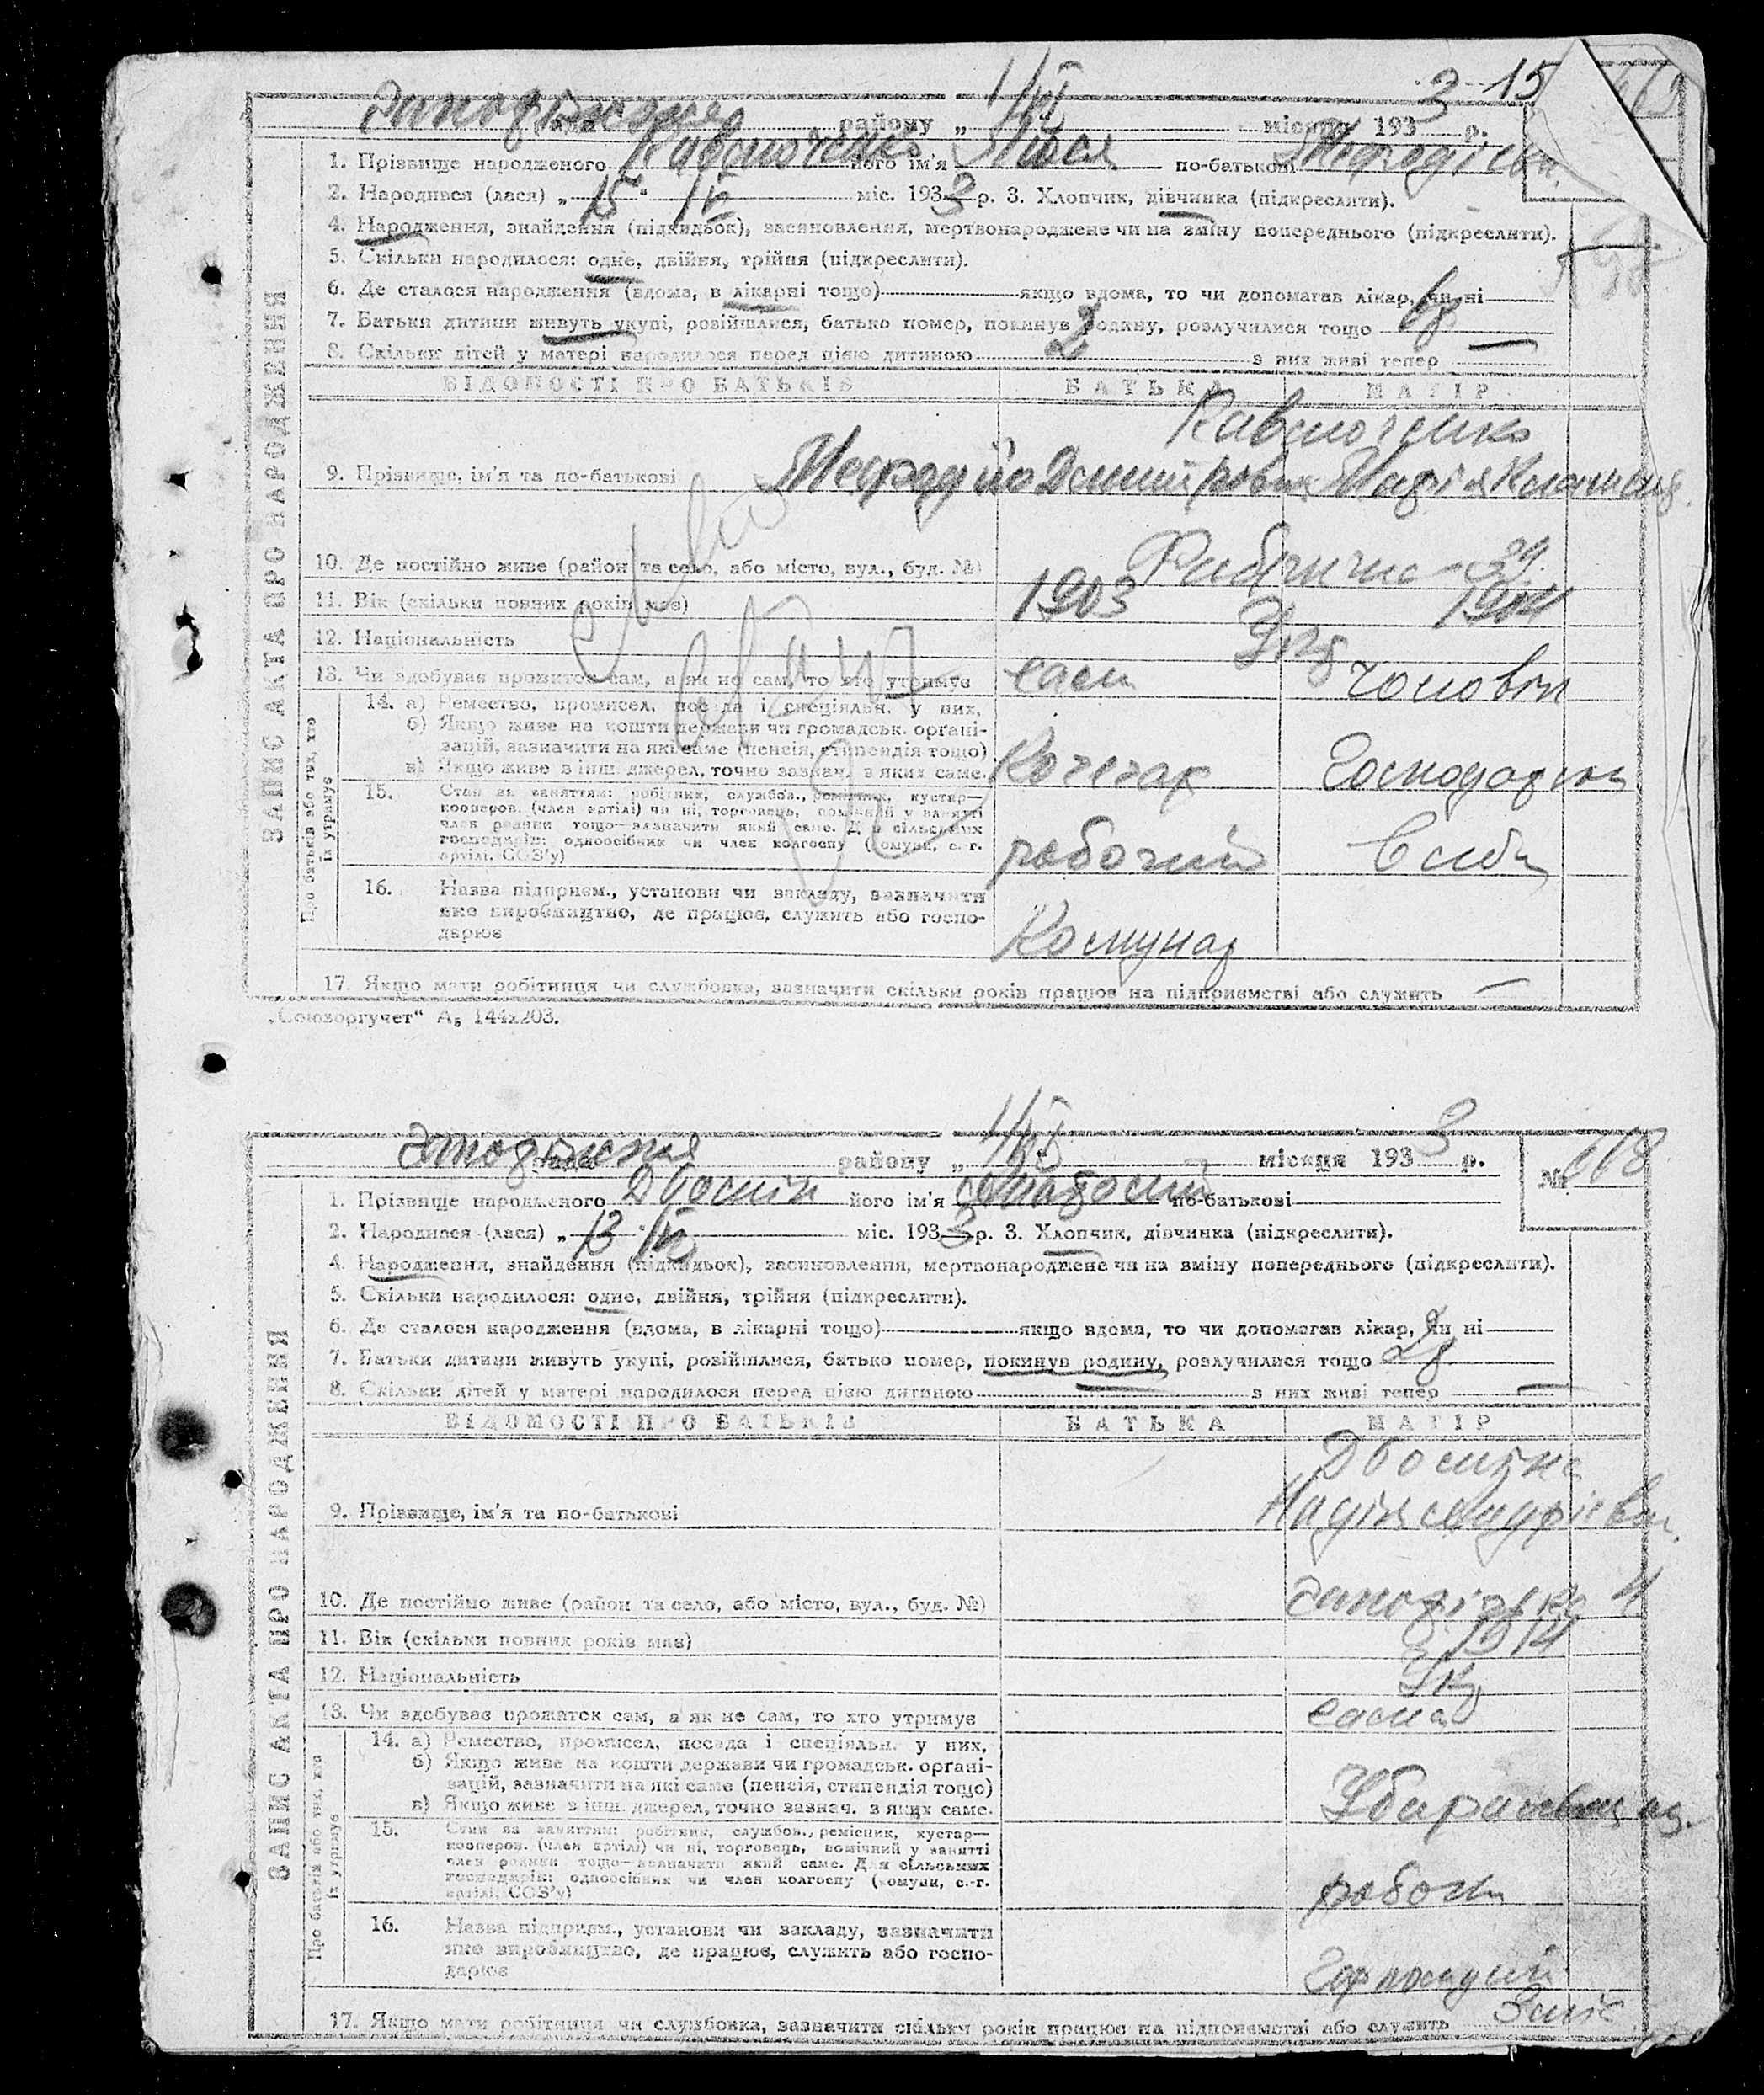 3 15
району „ 1/VI місяця 193 3 р.
1. Прізвище народженого його ім'я Люся по-батькові
2. Народився (лася) „ 15 " IV міс. 193 3 р. 3. Хлопчик, дівчинка (підкреслити).
4. Народження, знайдення (підкидьок), засиновлення, мертвонароджене чи на зміну попереднього (підкреслити).
5. Скільки народилося: одне, двійня, трійня (підкреслити).
6. Де сталося народження (вдома, в лікарні тощо) якщо вдома, то чи допомагав лікар, чи ні
7. Батьки дитини живуть укупі, розійшлися, батько помер, покинув родину, розлучилися тощо
8. Скільки дітей у матері народилося перед цією дитиною 2 з них живі тепер —
ВІДОМОСТІ ПРО БАТЬКІВ БАТЬКА МАТІР
9. Прізвище, ім'я та по-батькові
10. Де постійно живе (район та село, або місто, вул., буд. №) 39.
11. Вік (скільки повних років має) 1903 1904
12. Національність Укр
13. Чи здобуває прожиток сам, а як не сам, то хто утримує сам чоловік
14. а) Ремество, промисел, посада і спеціяльн. у них,
б) Якщо живе на кошти держави чи громадськ. органі-
зацій, зазначити на які саме (пенсія, стипендія тощо)
в) Якщо живе з інш. джерел, точно зазнач. з яких саме. Кочегар
15. Стан за заняттям: робітник, службов., ремісник, кустар—
кооперов. (член артілі) чи ні, торговець, помічний у занятті
член родини тощо—зазначити який саме. Для сільських
господарів: одноосібник чи член колгоспу (комуни, с.-г.
артілі, СОЗ'у) рабочий
16. Назва підприєм., установи чи закладу, зазначити
яке виробництво, де працює, служить або госпо-
дарює Комунар
17. Якщо мати робітниця чи службовка, зазначити скільки років працює на підприємстві або служить —
ЗАПИС АКТА ПРО НАРОДЖЕННЯ
Про батьків або тих, хто
їх утримує
„Союзоргучет" А₅ 144х203.
району „ 1/VI місяця 193 3 р. № 668
1. Прізвище народженого його ім'я по-батькові
2. Народився (лася) „ 13 IV міс. 193 3 р. 3. Хлопчик, дівчинка (підкреслити).
4. Народження, знайдення (підкидьок), засиновлення, мертвонароджене чи на зміну попереднього (підкреслити).
5. Скільки народилося: одне, двійня, трійня (підкреслити).
6. Де сталося народження (вдома, в лікарні тощо) якщо вдома, то чи допомагав лікар, чи ні
7. Батьки дитини живуть укупі, розійшлися, батько помер, покинув родину, розлучилися тощо
8. Скільки дітей у матері народилося перед цією дитиною з них живі тепер —
ВІДОМОСТІ ПРО БАТЬКІВ БАТЬКА МАТІР
9. Прізвище, ім'я та по-батькові Надія
10. Де постійно живе (район та село, або місто, вул., буд. №) 4
11. Вік (скільки повних років має) 1914
12. Національність Укр
13. Чи здобуває прожиток сам, а як не сам, то хто утримує сама
14. а) Ремество, промисел, посада і спеціяльн. у них,
б) Якщо живе на кошти держави чи громадськ. органі-
зацій, зазначити на які саме (пенсія, стипендія тощо)
в) Якщо живе з інш. джерел, точно зазнач. з яких саме.
15. Стан за заняттям: робітник, службов., ремісник, кустар—
кооперов. (член артілі) чи ні, торговець, помічний у занятті
член родини тощо—зазначити який саме. Для сільських
господарів: одноосібник чи член колгоспу (комуни, с.-г.
артілі, СОЗ'у)
16. Назва підприєм., установи чи закладу, зазначити
яке виробництво, де працює, служить або госпо-
дарює
17. Якщо мати робітниця чи службовка, зазначити скільки років працює на підприємстві або служить
ЗАПИС АКТА ПРО НАРОДЖЕННЯ
Про батьків або тих, хто
їх утримує